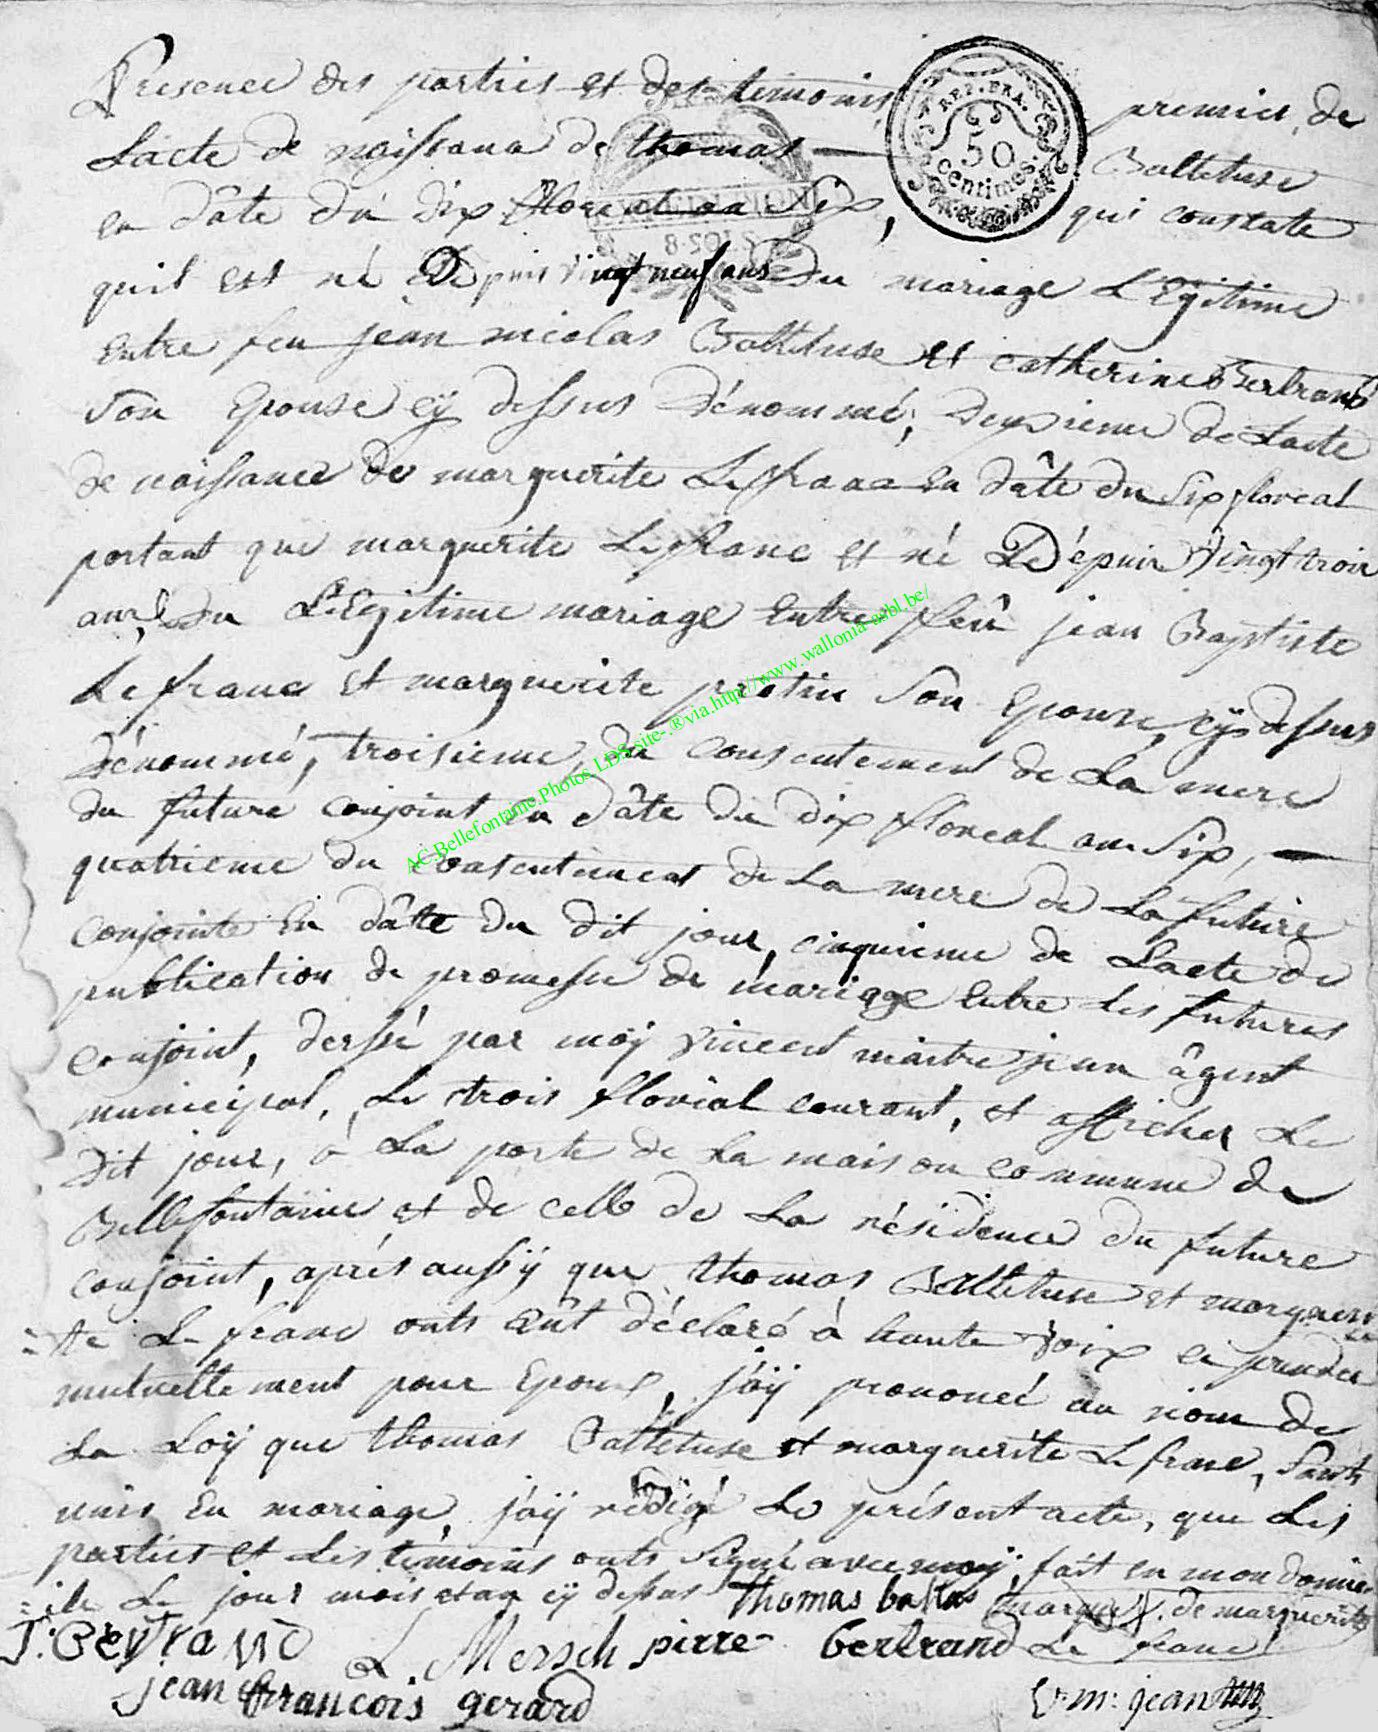 Presence des parties et des temoins premier, de
REP. FRA. 50 centimes.
Lacte de naissance de thomas — Balleteuse
en dâte du dix floreal an Six, qui constate
quil est né Depuis vingt neuf ans Du mariage L'Egitime
Entre feu jean nicolas Balleteuse et catherine Bertrand
Son Epouse cÿ dessus Dénommé, Deuxieme de Lacte
de naissance de marguerite Lefranc en dâte du Six floreal
portant que marguerite Lefranc et né Le Dépuis Vingt trois
ans, Du L'Egitime mariage Entre feû jean Baptiste
Lefranc et marguerite protin Son Epouse, cÿ dessus
Dénommé, troisieme, du consentement de La mere
du futuré conjoint en dâte du dix floreal an Six, —
quatrieme du consentement de La mere de La future
conjointe en dâtte du dit jour, cinquieme de Lacte de
publication de promesse de mariage Entre les futures
conjoint, derssé par moÿ vincent maitrejean âgent
municipal, Le trois floreal courant, et afficher Le
Dit jour, à La porte de La maison commune de
Bellefontaine et de celle de La résidence du future
conjoint, aprés aussÿ que thomas Balleteuse et margueri
te Le franc onts eût déclaré à haute voix ce prendre
mutuellement pour Epoux, j'aÿ prononcé au nom de
La Loÿ que thomas Balleteuse et marguerite Lefranc, Sonts
unis En mariage, j'aÿ rédigé Le présent acte, que Les
parties et Les témoins onts Signé avec moy, fait en mon domic
ile Le jour mois et an cÿ dessus thomas ballas marque de marguerite
J: Bertrand L. Mersch pierre bertrand Le franc
jean francois gerard V: m: jean
AC.Bellefontaine.Photos.LDS.site-.®via.http://www.wallonia-asbl.be/